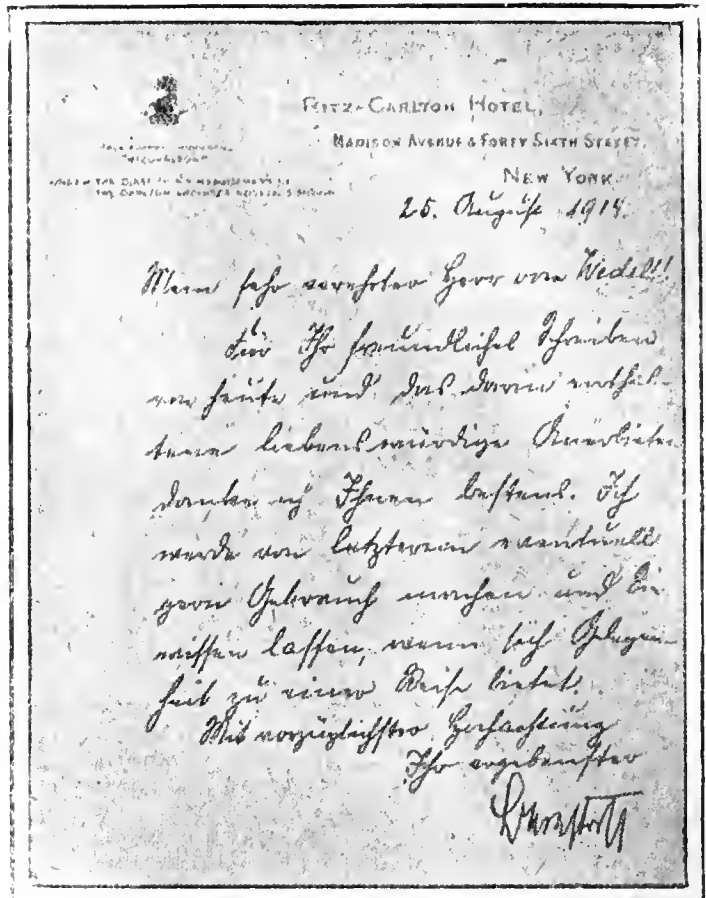 RITZ-CARLTON HOTEL,
MADISON AVENUE & FORTY SIXTH STREET,
NEW YORK.
25. August 1914.
Mein sehr verehrter Herr von Wedell!
Für Ihr freundliches Schreiben
von heute und das darin enthal-
tene liebenswürdige Anerbieten
danke ich Ihnen bestens. Ich
werde von letzterem eventuell
gern Gebrauch machen und Sie
wissen lassen, wenn sich Gelegen-
heit zu einer Reise bietet.
Mit vorzüglichster Hochachtung
Ihr ergebenster
Bernstorff